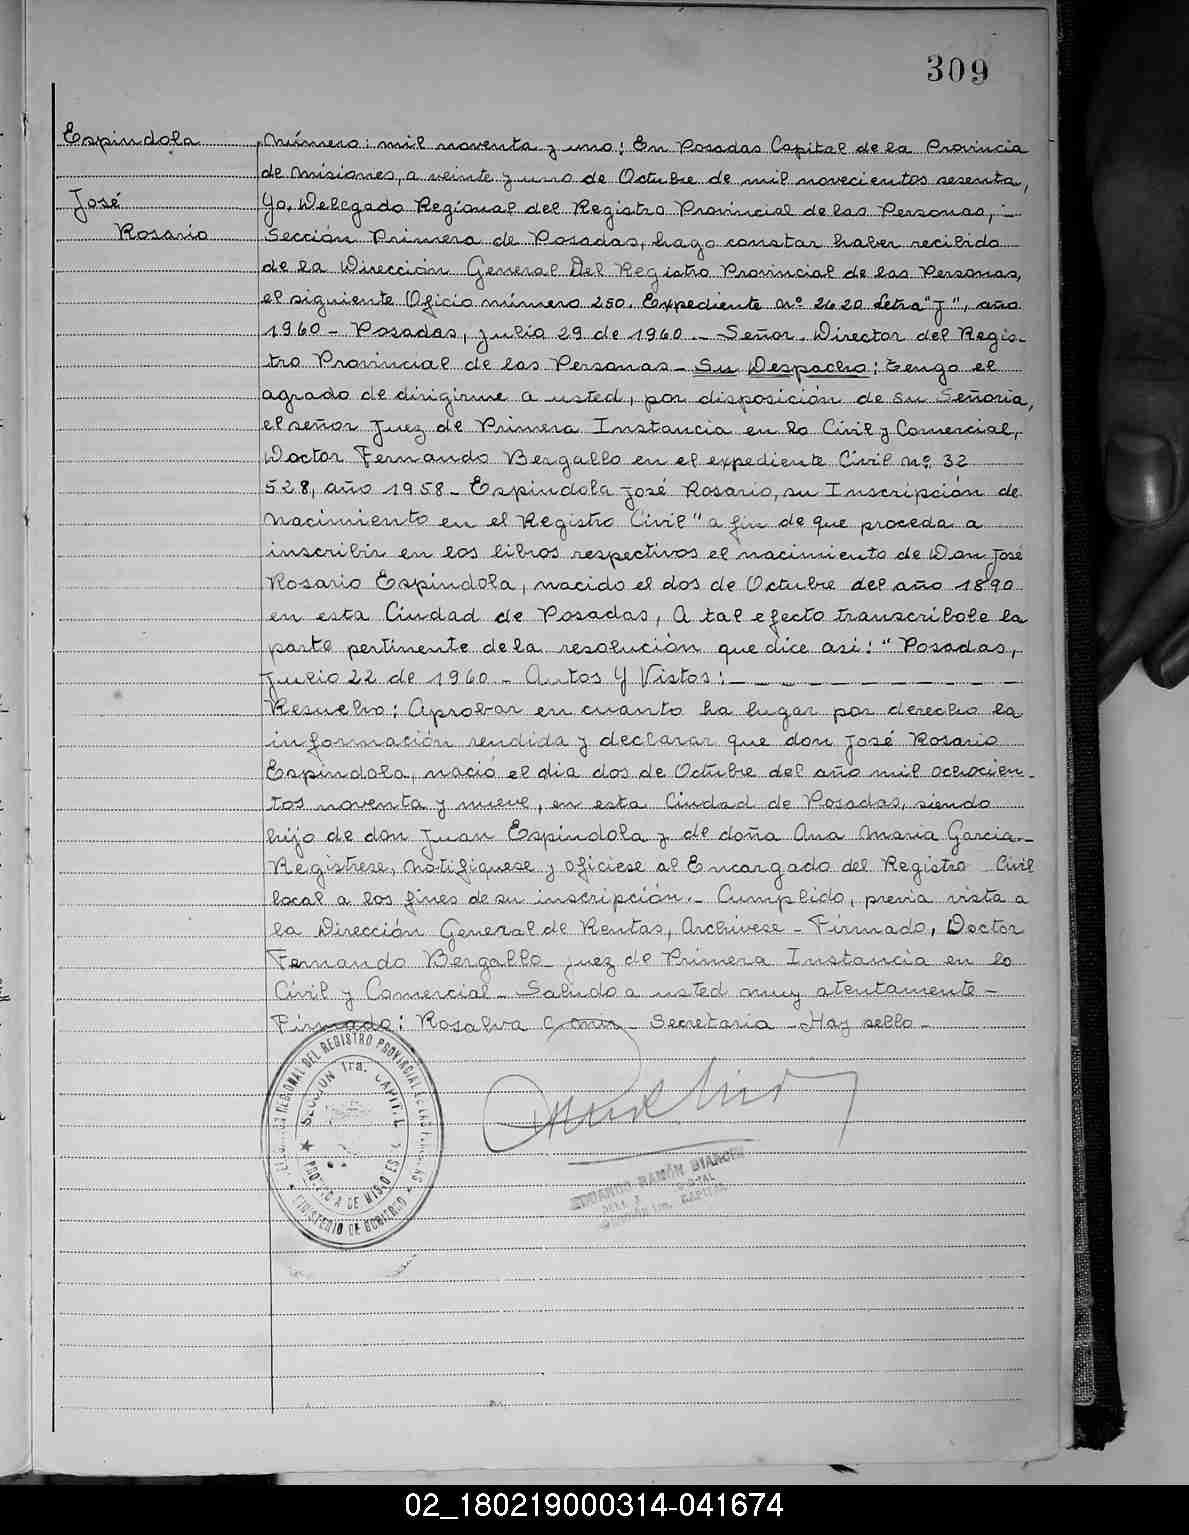 309
Espindola
José
Rosario
Número: mil noventa y uno: En Posadas Capital de la Provincia
de Misiones, a veinte y uno de Octubre de mil novecientos sesenta,
Yo, Delegado Regional del Registro Provincial de las Personas, -
Sección Primera de Posadas, hago constar haber recibido
de la Dirección General Del Registro Provincial de las Personas,
el siguiente Oficio número 250. Expediente nº 2620 Letra "J", año
1960 - Posadas, julio 29 de 1960 - Señor. Director del Regis-
tro Provincial de las Personas - Su Despacho: tengo el
agrado de dirigirme a usted, por disposición de su Señoria,
el señor Juez de Primera Instancia en lo Civil y Comercial,
Doctor Fernando Bergallo en el expediente Civil nº 32
528, año 1958 - Espindola José Rosario, su Inscripción de
Nacimiento en el Registro Civil" a fin de que proceda a
inscribir en los libros respectivos el nacimiento de Don José
Rosario Espíndola, nacido el dos de Octubre del año 1890
en esta Ciudad de Posadas, A tal efecto transcríbole la
parte pertinente de la resolución que dice asi: "Posadas,
Julio 22 de 1960 - Autos Y Vistos: - - - - - - - -
Resuelvo: Aprobar en cuanto ha lugar por derecho la
información rendida y declarar que don José Rosario
Espíndola, nació el dia dos de Octubre del año mil ochocien-
tos noventa y nueve, en esta Ciudad de Posadas, siendo
hijo de don Juan Espíndola y de doña Ana Maria Garcia -
Registrese, notifiquese y ofíciese al Encargado del Registro Civil
local a los fines de su inscripción. - Cumplido, previa vista a
la Dirección General de Rentas, Archívese - Firmado, Doctor
Fernando Bergallo - Juez de Primera Instancia en lo
Civil y Comercial - Saludo a usted muy atentamente -
Firmado: Rosalva - Secretaria - Hay sello -
REGIONAL DEL REGISTRO PROVINCIAL DE LAS PERSONAS
SECCION 1ra. CAPITAL
DE MISIONES
MINISTERIO DE GOBIERNO
EDUARDO RAMÓN BIANCHI
CAPITAL
02_180219000314-041674